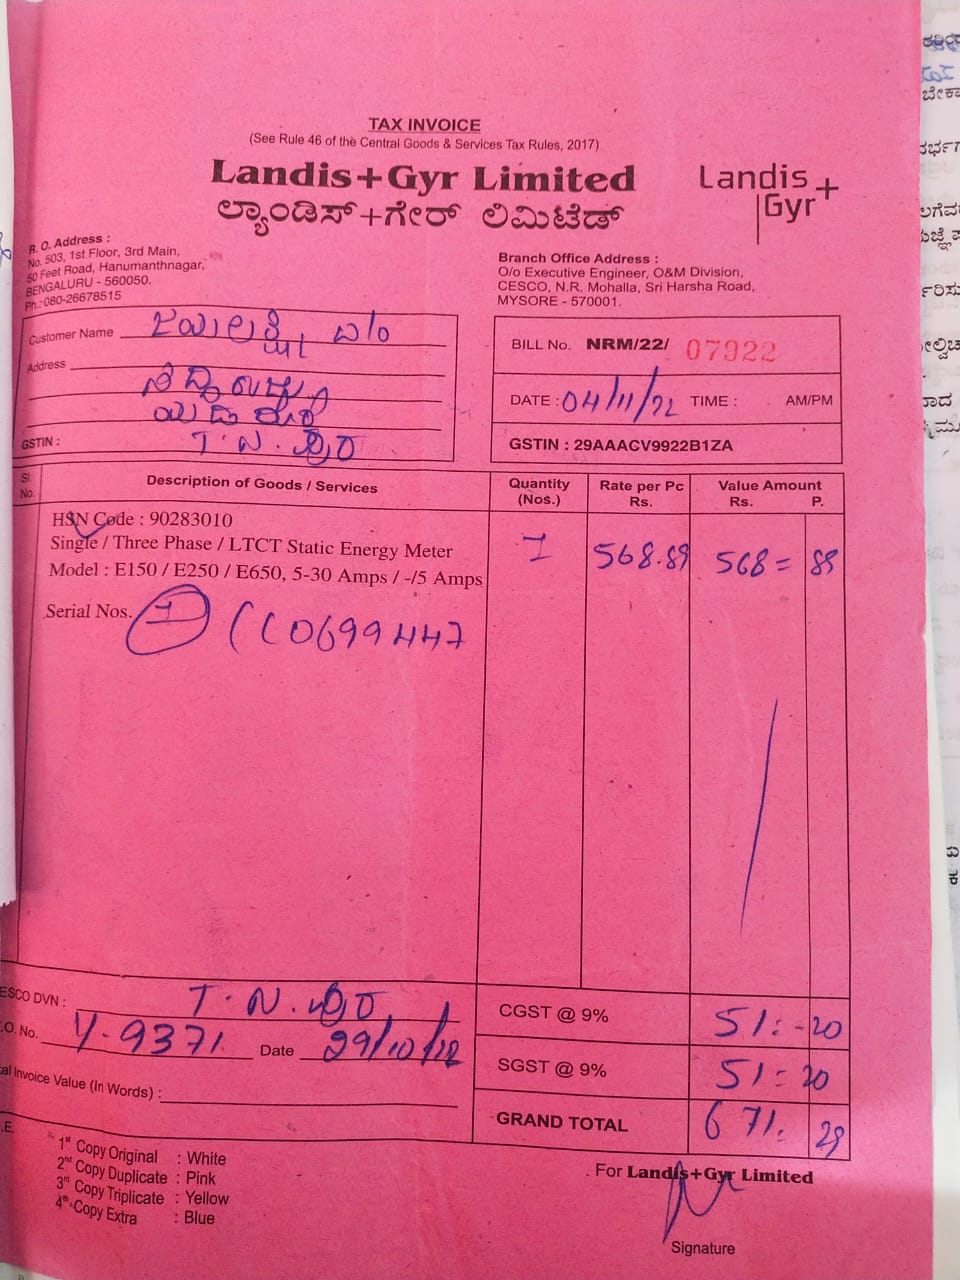 TAX INVOICE
(See Rule 46 of the Central Goods & Services Tax Rules, 2017)
Landis+Gyr Limited
ಲ್ಯಾಂಡಿಸ್+ಗೇರ್ ಲಿಮಿಟೆಡ್
Landis
Gyr+
R. O. Address :
No. 503, 1st Floor, 3rd Main,
50 Feet Road, Hanumanthnagar,
BENGALURU - 560050.
Ph.: 080-26678515
Branch Office Address :
O/o Executive Engineer, O&M Division,
CESCO, N.R. Mohalla, Sri Harsha Road,
MYSORE - 570001.
Customer Name
Address
GSTIN :
BILL No. NRM/22/ 07922
DATE : 04/11/22 TIME : AM/PM
GSTIN : 29AAACV9922B1ZA
Sl. No. Description of Goods / Services Quantity (Nos.) Rate per Pc Rs. Value Amount Rs. P.
HSN Code : 90283010
Single / Three Phase / LTCT Static Energy Meter 1 568.89 568 = 89
Model : E150 / E250 / E650, 5-30 Amps / -/5 Amps
Serial Nos. 1
DVN :
O. No. Y-9371 Date 29/10/
Invoice Value (In Words) :
CGST @ 9% 51 : - 20
SGST @ 9% 51 = 20
GRAND TOTAL 671. 29
1st Copy Original : White
2nd Copy Duplicate : Pink
3rd Copy Triplicate : Yellow
4th Copy Extra : Blue
For Landis+Gyr Limited
Signature